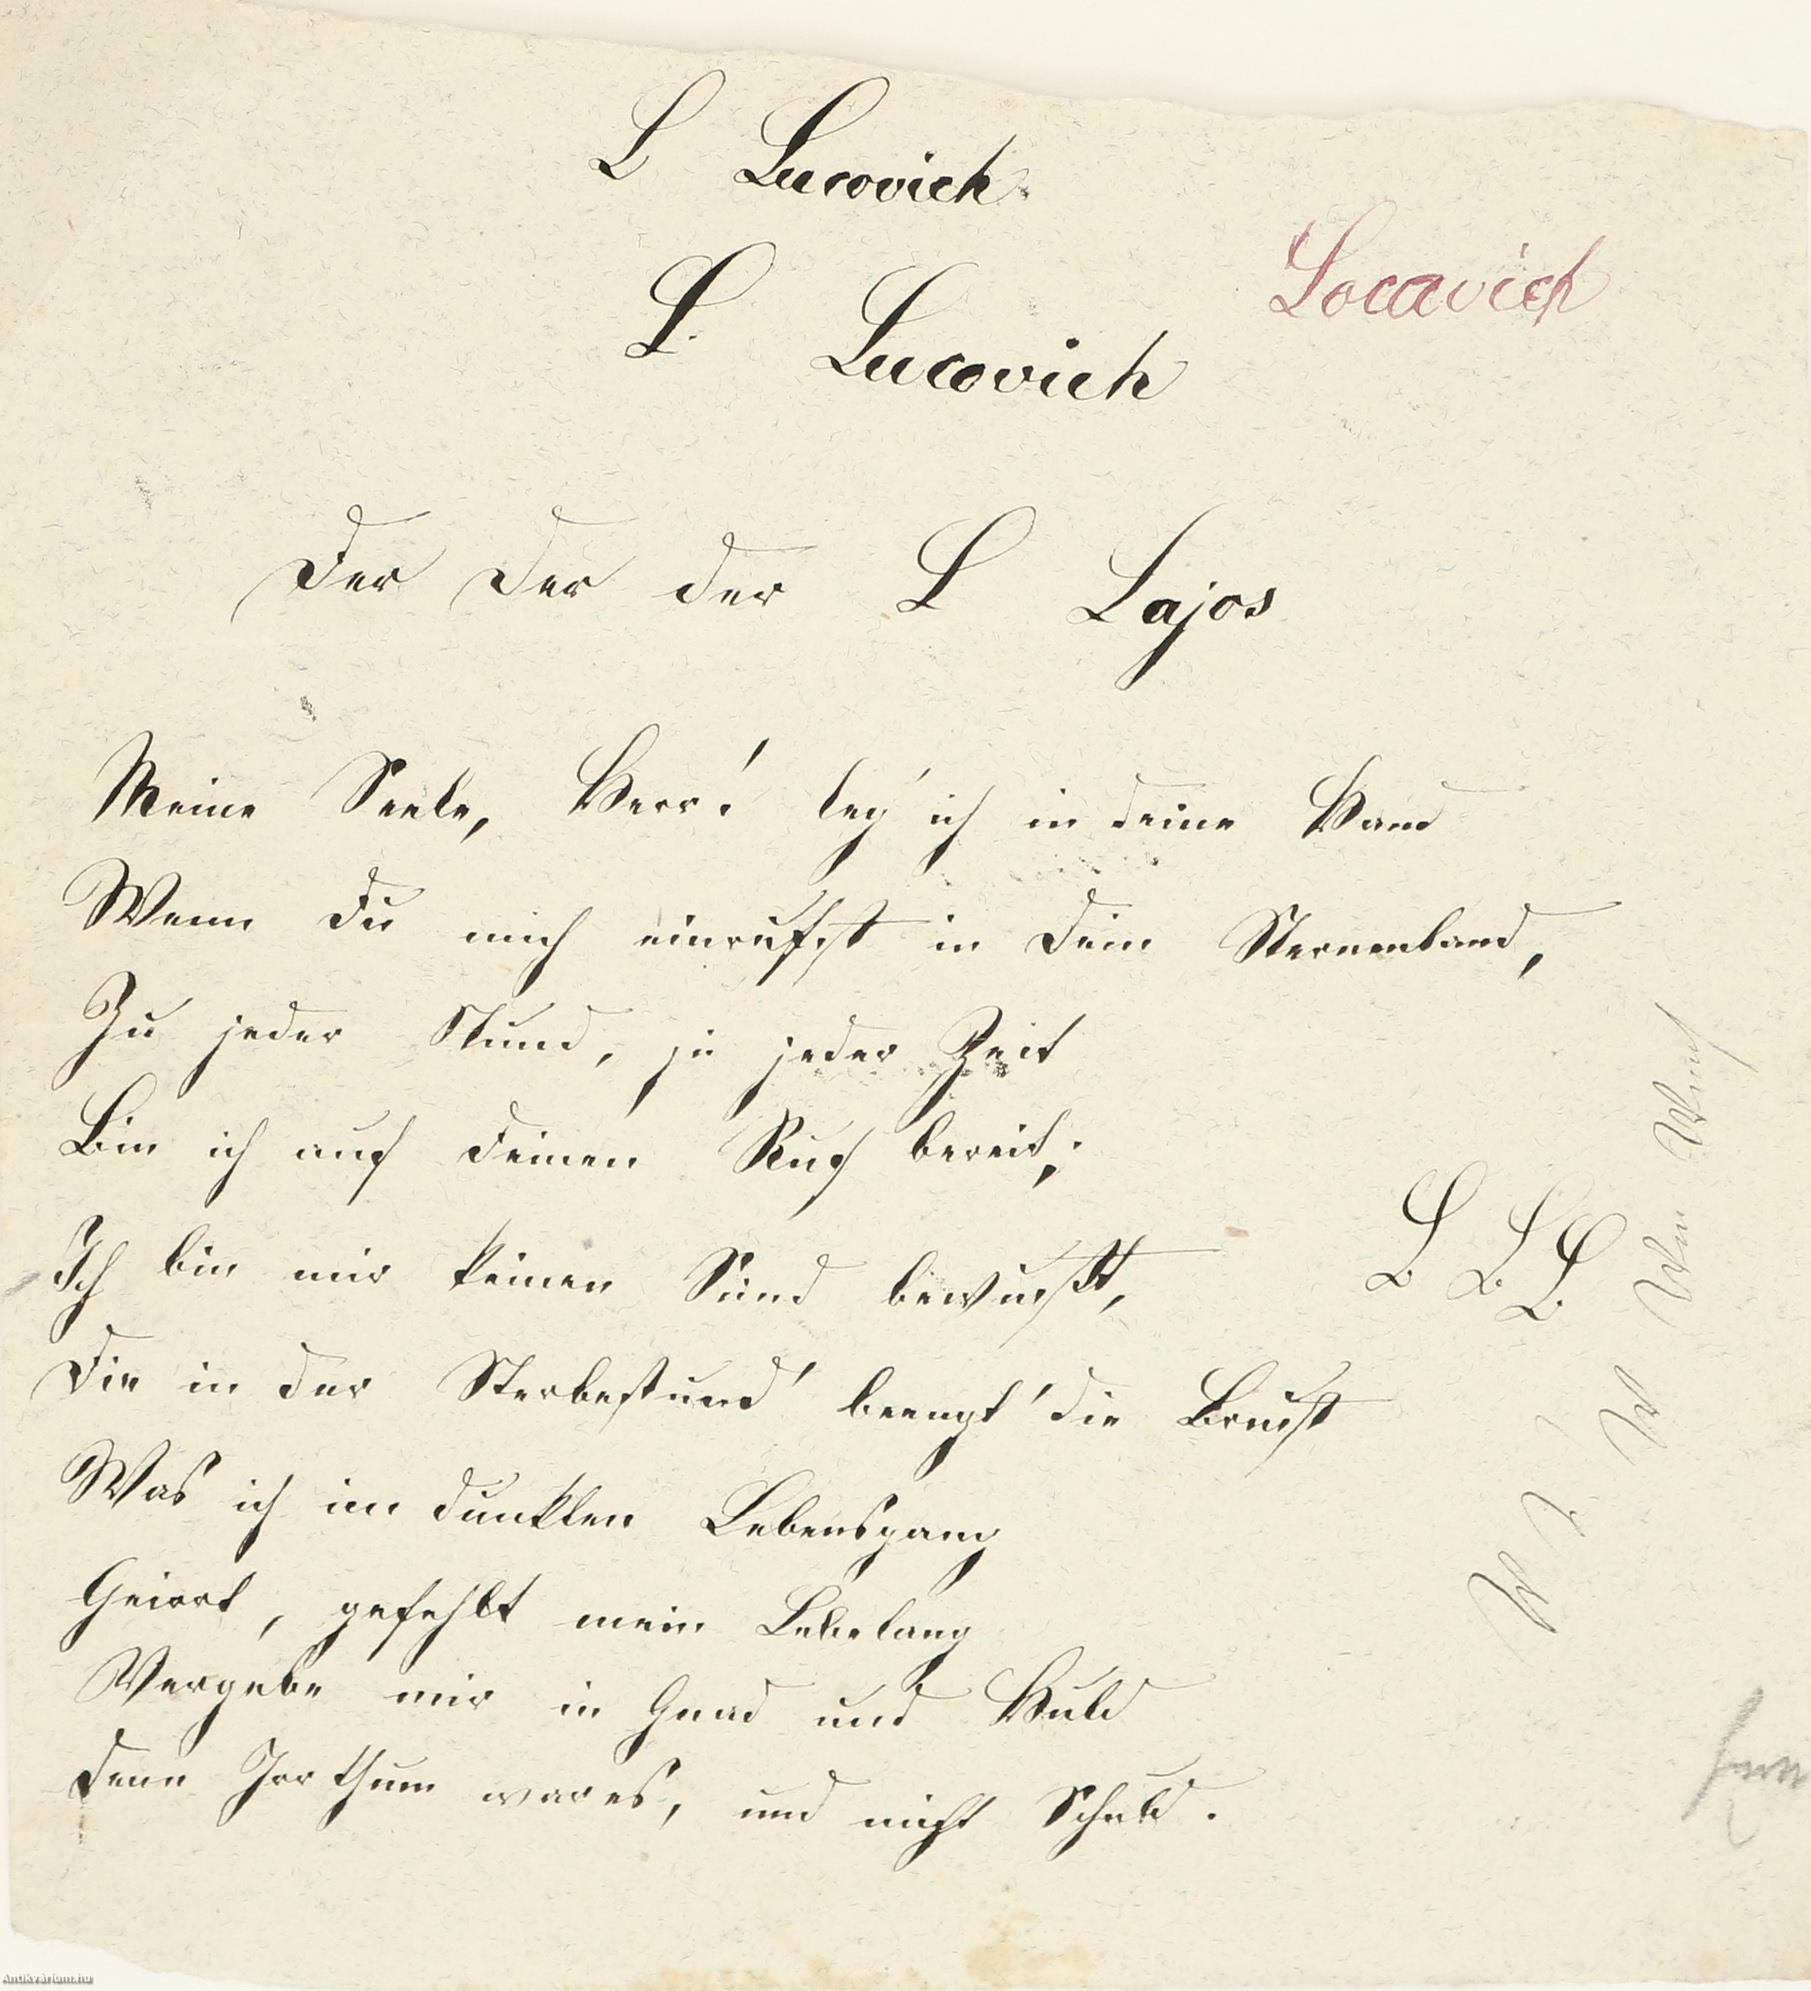 L Lucovich
L. Lucovich
Locavich
Der Der der L Lajos
Meine Seele, Herr! leg' ich in deine Hand
Wenn Du mich einrufst in Dein Sternenland,
Zu jeder Stund, zu jeder Zeit
Bin ich auf Deinen Ruf bereit;
Ich bin mir keinen Sünd bewußt,
Die in der Sterbestund' beengt' die Brust
Was ich im dunklen Lebensgang
Geirrt, gefehlt mein Lebelang
Vergebe mir in Gnad und Huld
Denn Irrthum war es, und nicht Schuld.
L L L
W
W
Antikvárium.hu